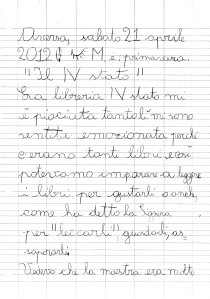 Aversa, sabato 21 aprile
2012 M. è primavera.
"Il IV stato"
La libreria IV stato mi
è piaciuta tanto! mi sono
sentita emozionata perché
c'erano tanti libri, e così
potevamo imparare a leggere
i libri per gustarli o anche,
come ha detto la signora
per "leccarli", guardarli, as-
saporarli.
Vedevo che la maestra era molto